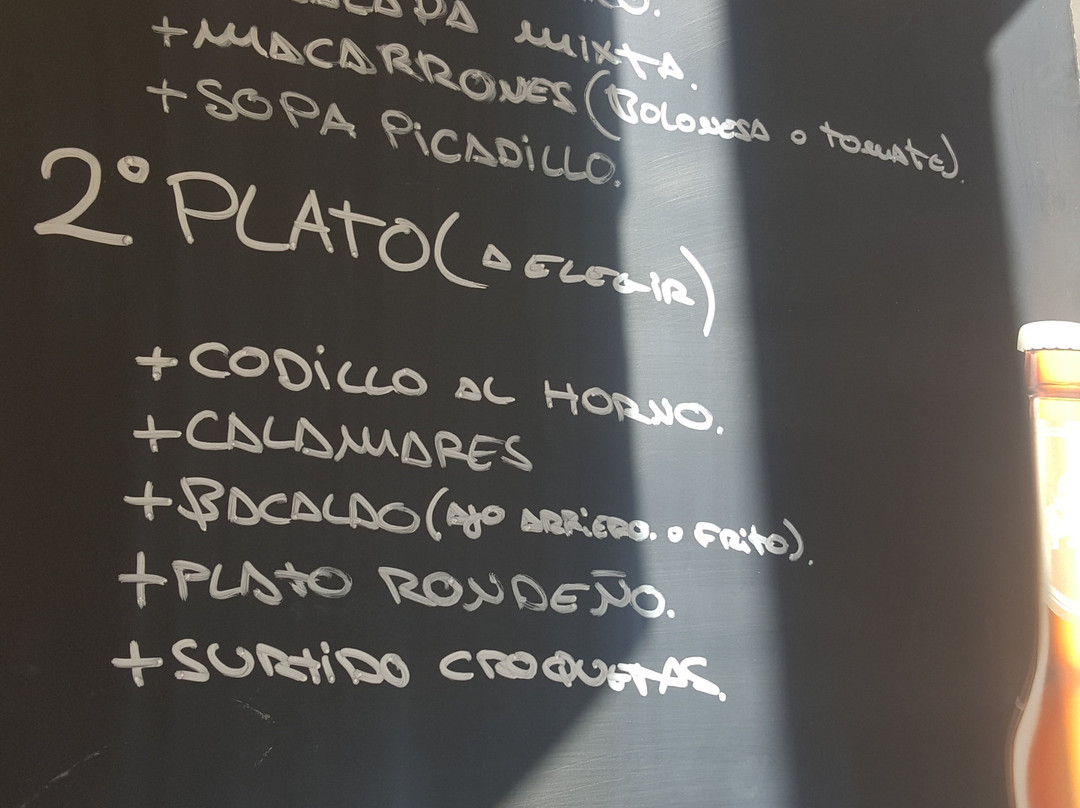 MIXTA.
+MACARRONES (BOLOÑESA O TOMATE).
+SOPA PICADILLO.
2º PLATO (A ELEGIR)
+CODILLO AL HORNO.
+CALAMARES
+BACALAO (AJO ARRIERO. O FRITO).
+PLATO RONDEÑO.
+SURTIDO CROQUETAS.